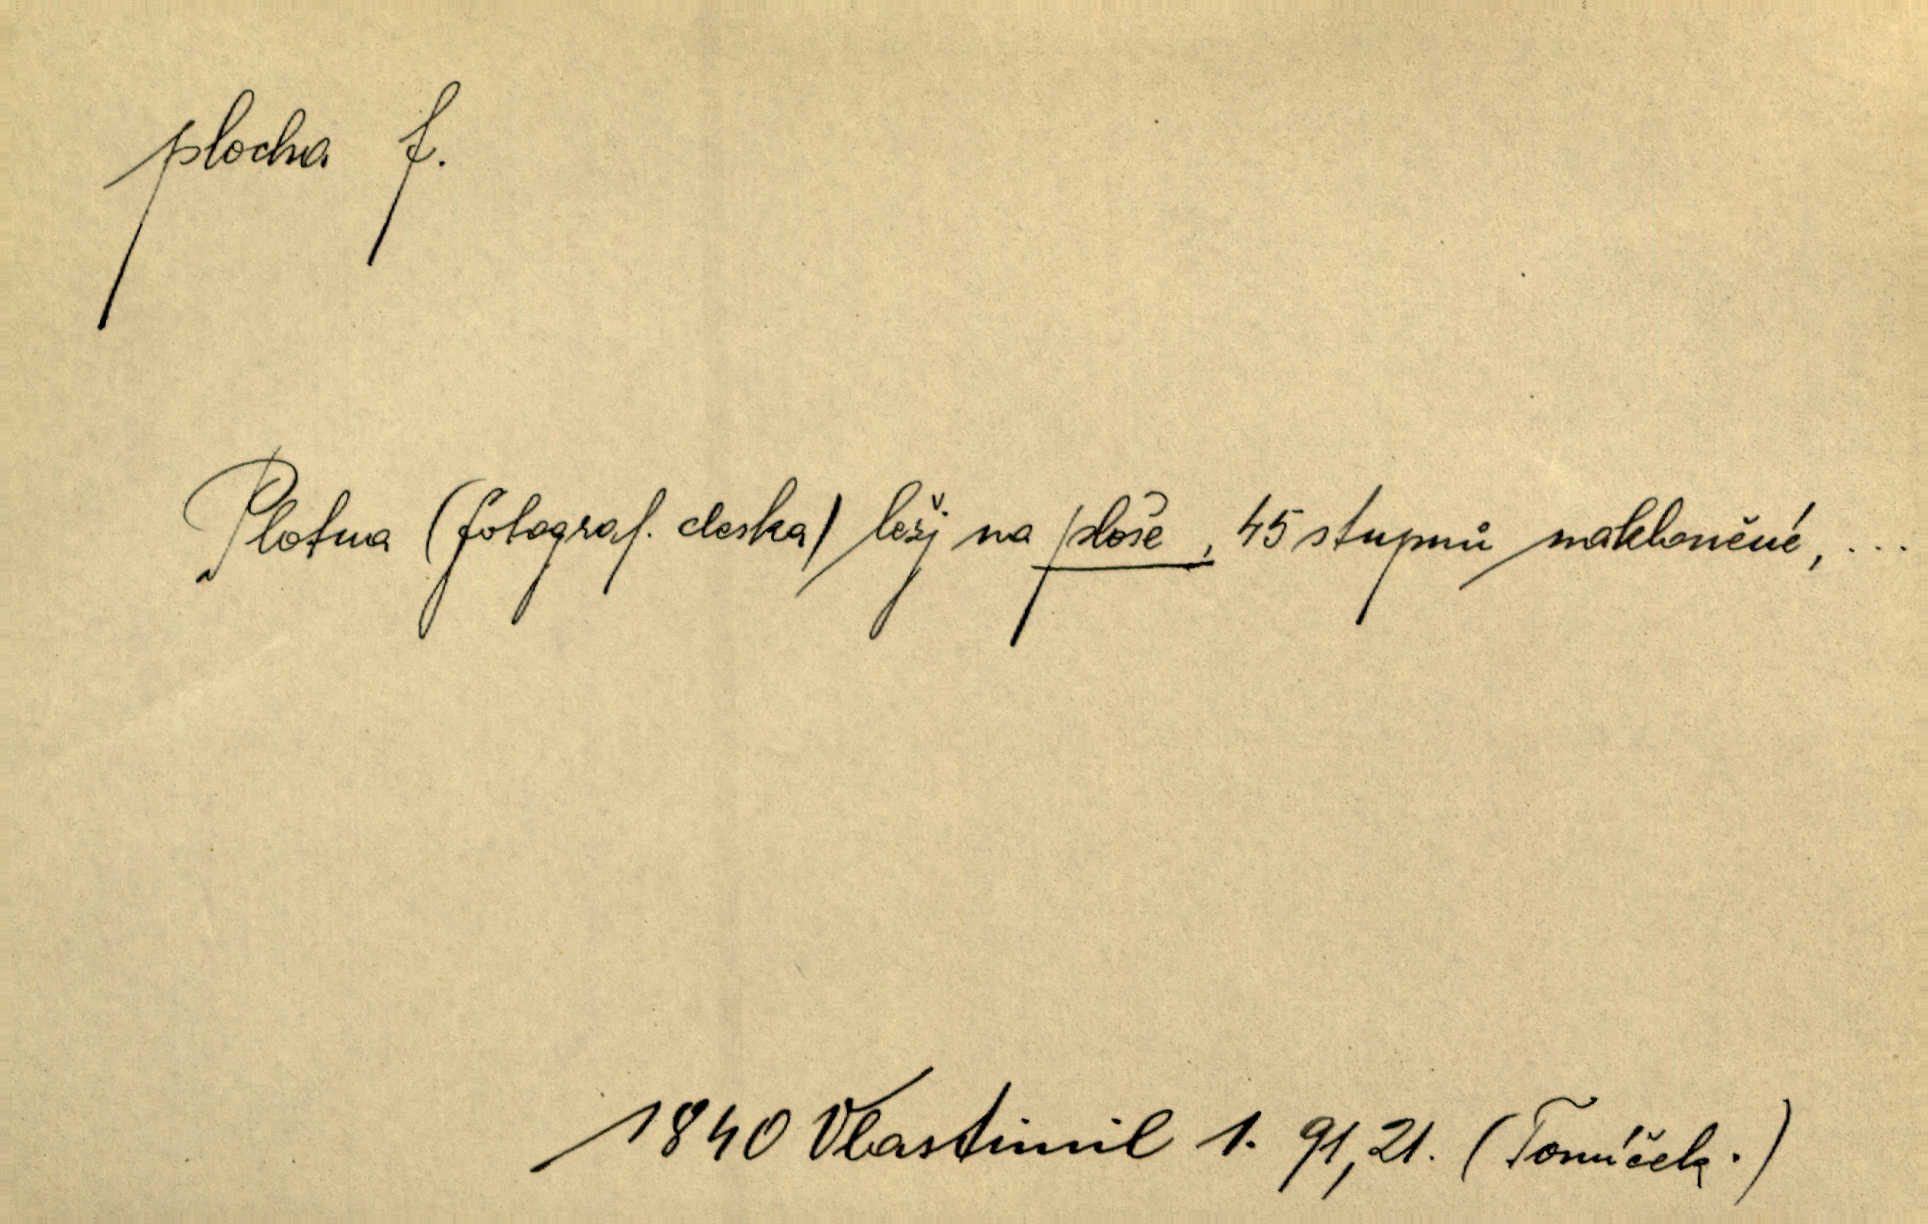 plocha f.
Plotna (fotograf. deska) ležj na ploše, 45 stupnů nakloněné, ...
1840 Vlastimil 1. 91,21. (Tomíček.)